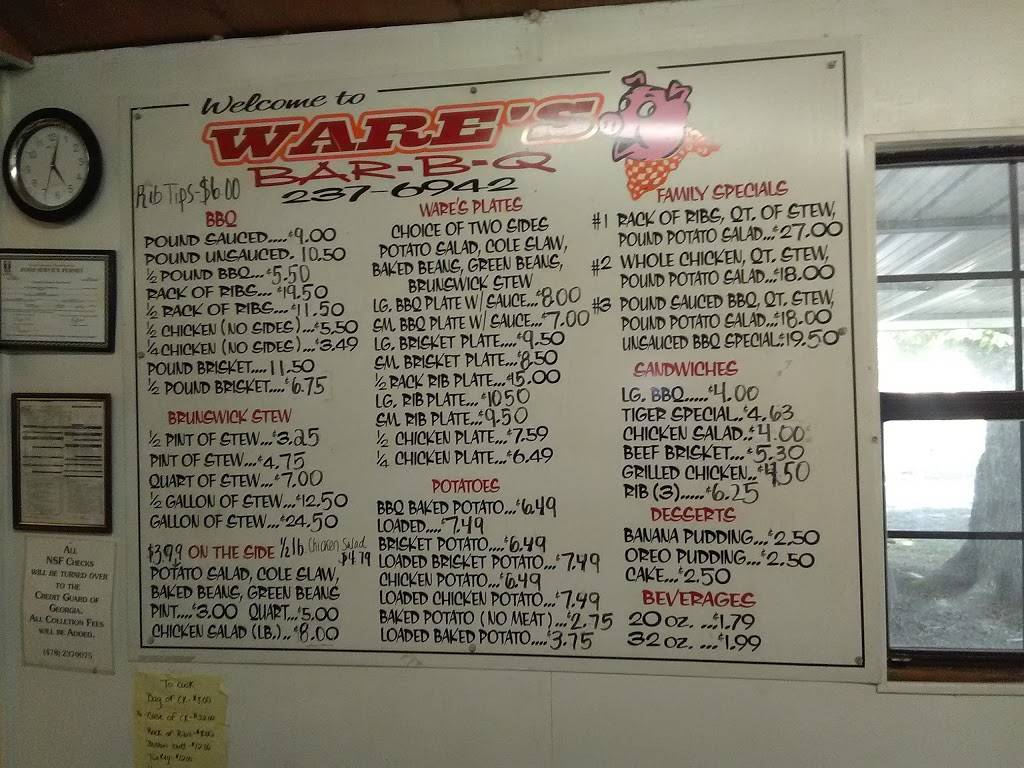 Welcome to
WARE'S
BAR-B-Q
237-6942
Rib Tips-$6.00
BBQ
POUND SAUCED....$9.00
POUND UNSAUCED. 10.50
½ POUND BBQ...$5.50
RACK OF RIBS....$19.50
½ RACK OF RIBS...$11.50
½ CHICKEN (NO SIDES)...$5.50
¼ CHICKEN (NO SIDES)...$3.49
POUND BRISKET....11.50
½ POUND BRISKET....$6.75
BRUNSWICK STEW
½ PINT OF STEW...$3.25
PINT OF STEW...$4.75
QUART OF STEW...$7.00
½ GALLON OF STEW...$12.50
GALLON OF STEW...$24.50
$3.99 ON THE SIDE ½ lb. Chicken Salad $4.79
POTATO SALAD, COLE SLAW,
BAKED BEANS, GREEN BEANS
PINT....$3.00 QUART..$5.00
CHICKEN SALAD (LB.)..$8.00
WARE'S PLATES
CHOICE OF TWO SIDES
POTATO SALAD, COLE SLAW,
BAKED BEANS, GREEN BEANS,
BRUNSWICK STEW
LG. BBQ PLATE W/ SAUCE...$8.00
SM. BBQ PLATE W/ SAUCE...$7.00
LG. BRISKET PLATE....$9.50
SM. BRISKET PLATE...$8.50
½ RACK RIB PLATE...$15.00
LG. RIB PLATE...$10.50
SM. RIB PLATE...$9.50
½ CHICKEN PLATE...$7.59
¼ CHICKEN PLATE...$6.49
POTATOES
BBQ BAKED POTATO...$6.49
LOADED....$7.49
BRISKET POTATO....$6.49
LOADED BRISKET POTATO...$7.49
CHICKEN POTATO...$6.49
LOADED CHICKEN POTATO...$7.49
BAKED POTATO (NO MEAT)...$2.75
LOADED BAKED POTATO....$3.75
FAMILY SPECIALS
#1 RACK OF RIBS, QT. OF STEW,
POUND POTATO SALAD...$27.00
#2 WHOLE CHICKEN, QT. STEW,
POUND POTATO SALAD...$18.00
#3 POUND SAUCED BBQ, QT. STEW,
POUND POTATO SALAD...$18.00
UNSAUCED BBQ SPECIAL:$19.50
SANDWICHES
LG. BBQ.....$4.00
TIGER SPECIAL..$4.63
CHICKEN SALAD.:$4.00
BEEF BRISKET...$5.30
GRILLED CHICKEN..$4.50
RIB (3).....$6.25
DESSERTS
BANANA PUDDING...$2.50
OREO PUDDING...$2.50
CAKE...$2.50
BEVERAGES
20 OZ. ...$1.79
32 OZ. ...$1.99
ALL
NSF CHECKS
WILL BE TURNED OVER
TO THE
CREDIT GUARD OF
GEORGIA.
ALL COLLETION FEES
WILL BE ADDED.
(478) 2379075
To Cook